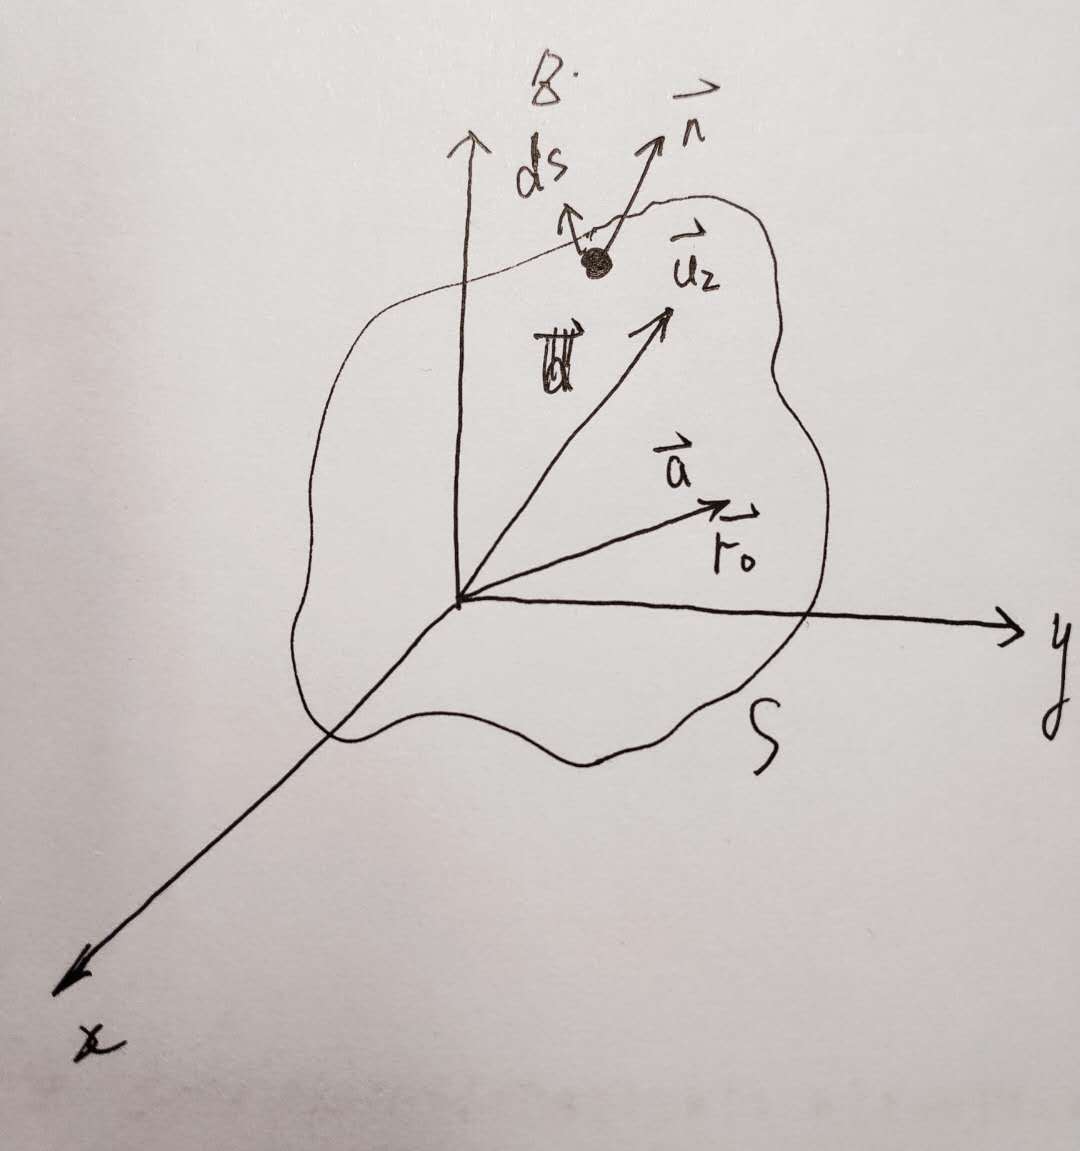 z
n⃗
ds
u⃗₂
a⃗
r⃗₀
y
S
x